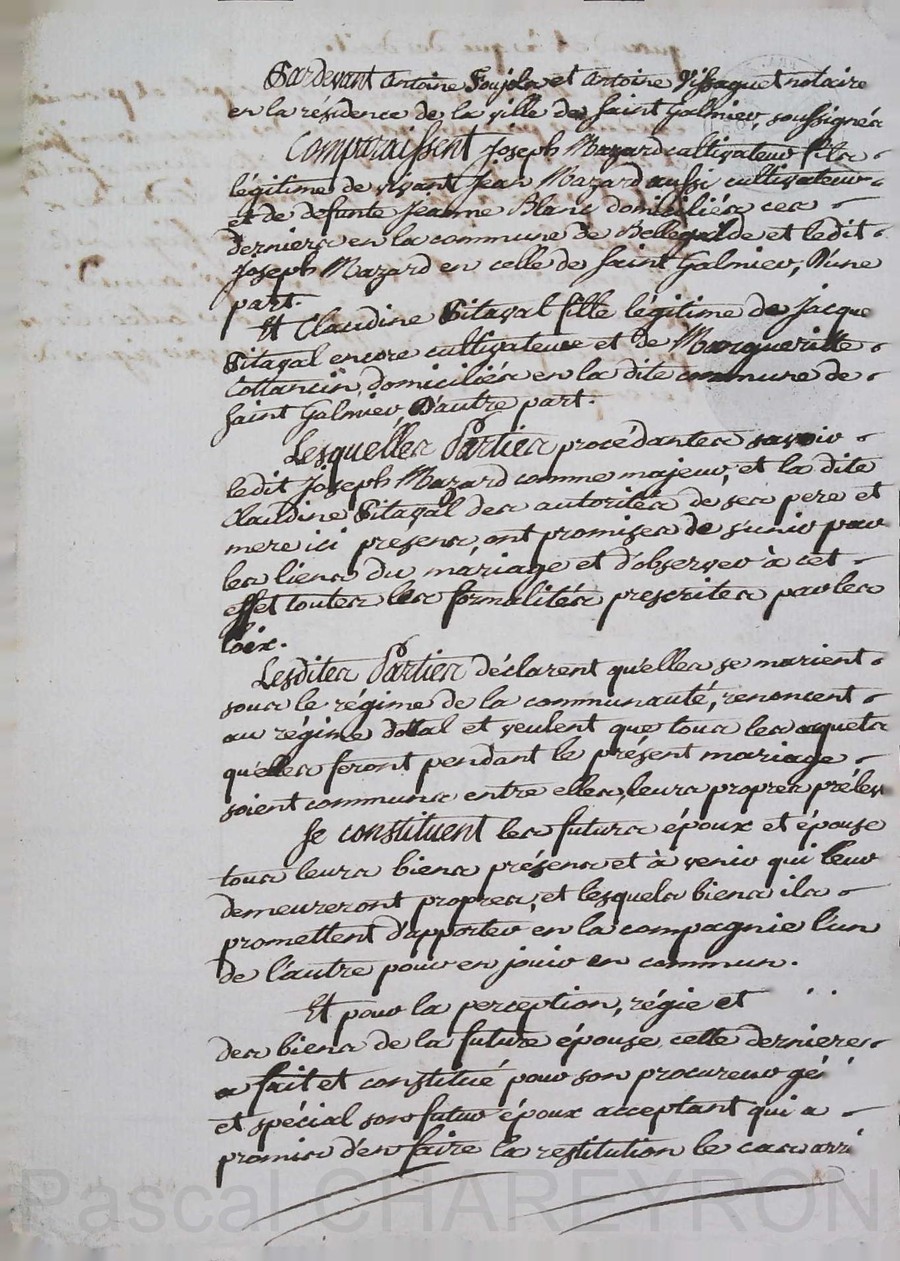 Pardevant Antoine Soujole et Antoine Vissaguet notaire
en la résidence de la ville de Saint Galmier, soussignés
Comparaissent Joseph Mazard cultivateur fils
légitime de vivant Jean Mazard aussi cultivateur
et de defunte Jeanne Blanc domiciliés ces
derniers en la commune de Bellegarde et ledit
Joseph Mazard en celle de Saint Galmier, D'une
part.
Et Claudine Pitaval fille légitime de Jacque
Pitaval encore cultivateur et de Margueritte
Cottancin, domiciliés en la dite commune de
Saint Galmier, D'autre part.
Lesquelles Parties procédantes savoir
ledit Joseph Mazard comme majeur, et la dite
Claudine Pitaval des autorités de ses pere et
mere ici presens, ont promises de s'unir par
les liens du mariage et d'observer à cet
effet toutes les formalités prescrites par les
loix.
Lesdites Parties déclarent qu'elles se marient
sous le régime de la communauté, renoncent
au régime dottal et veulent que tous les aquets
qu'elles feront pendant le présent mariage
soient communs entre elles, leurs propres prélev
Se constituent les futurs époux et épouse
tous leurs biens présens et à venir qui leur
demeureront propres, et lesquels biens ils
promettent d'apporter en la compagnie l'un
de l'autre pour en jouir en commun.
Et pour la perception, régie et
des biens de la future épouse, cette derniere
a fait et constitué pour son procureur gé
et spécial son futur époux acceptant qui a
promis d'en faire la restitution le cas arri
Pascal CHAREYRON